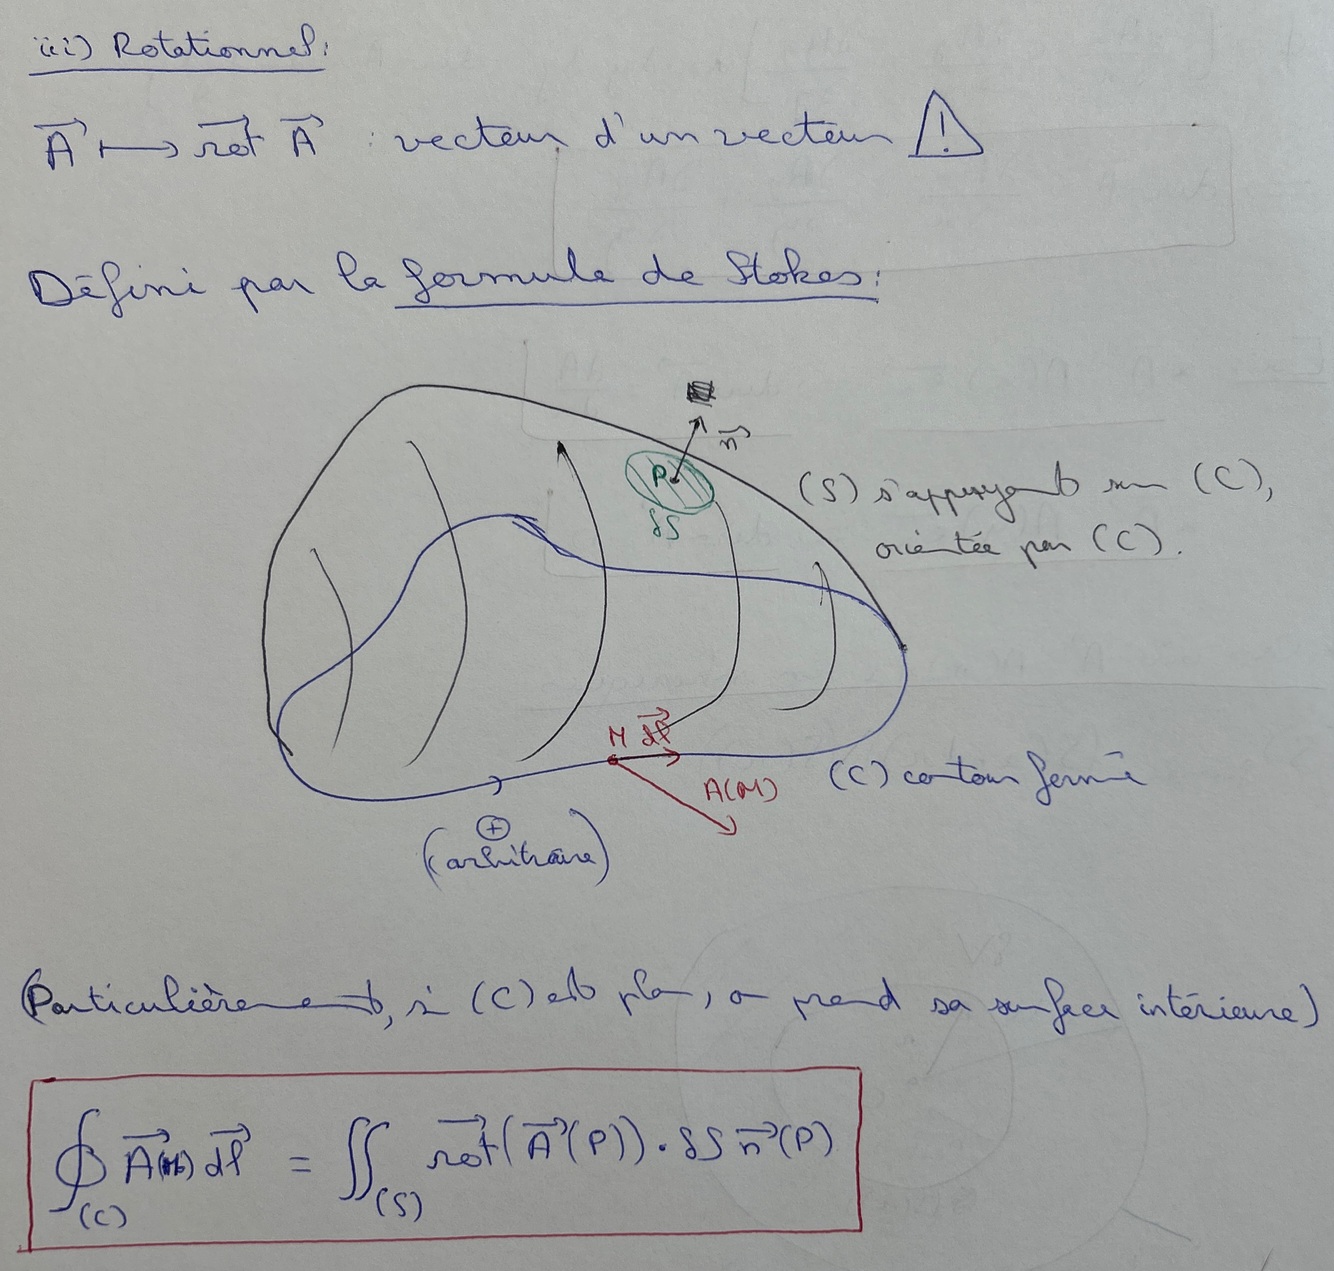 iii) Rotationnel:
A⃗ ⟼ rot⃗ A⃗ : vecteur d'un vecteur ⚠
Défini par la formule de Stokes:
n⃗
P
δS
(S) s'appuyant sur (C),
orientée par (C).
M dl⃗
A(M)
(C) contour fermé
⊕
(arbitraire)
(Particulièrement, si (C) est plan, on prend sa surface intérieure)
∮_(C) A⃗(M) dl⃗ = ∬_(S) rot⃗(A⃗(P)) · δS n⃗(P)